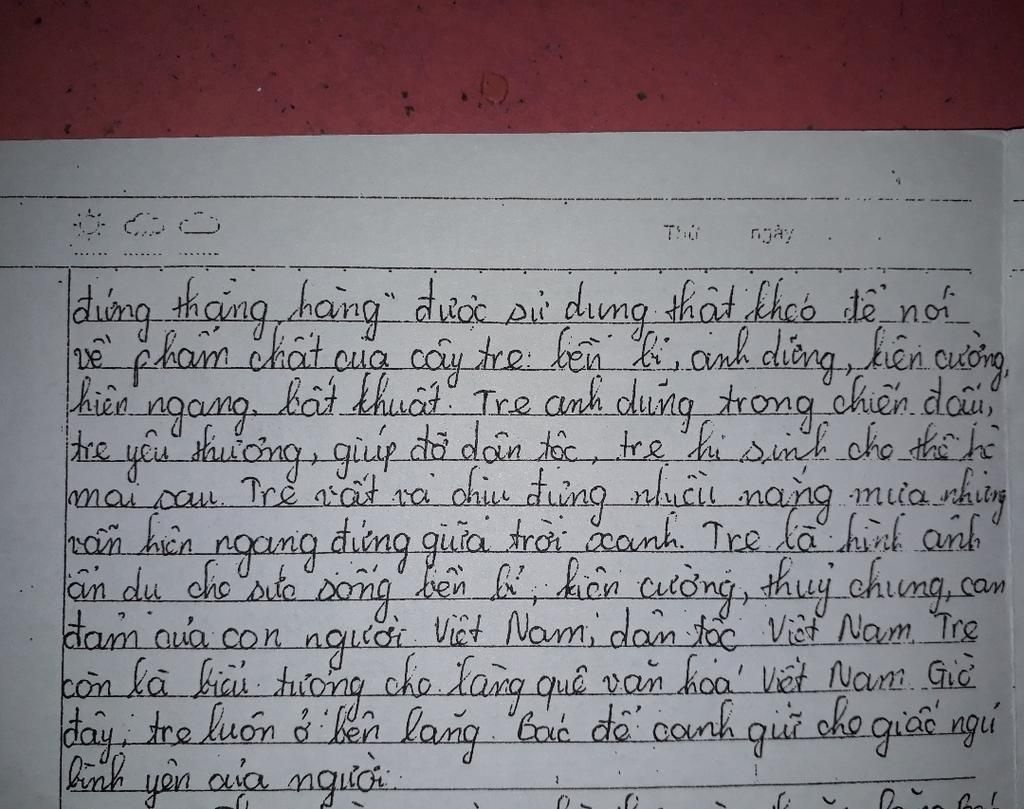 Thứ ngày
đứng thẳng hàng" được sử dụng thật khéo để nói
về phẩm chất của cây tre: bền bỉ, anh dũng, kiên cường,
hiên ngang, bất khuất. Tre anh dũng trong chiến đấu,
tre yêu thương, giúp đỡ dân tộc, tre hi sinh cho thế hệ
mai sau. Tre vất vả chịu đựng nhiều nắng mưa nhưng
vẫn hiên ngang đứng giữa trời xanh. Tre là hình ảnh
ẩn dụ cho sức sống bền bỉ, kiên cường, thuỷ chung, can
đảm của con người Việt Nam, dân tộc Việt Nam. Tre
còn là biểu tượng cho làng quê văn hoá Việt Nam. Giờ
đây, tre luôn ở bên lăng Bác để canh giữ cho giấc ngủ
bình yên của người.